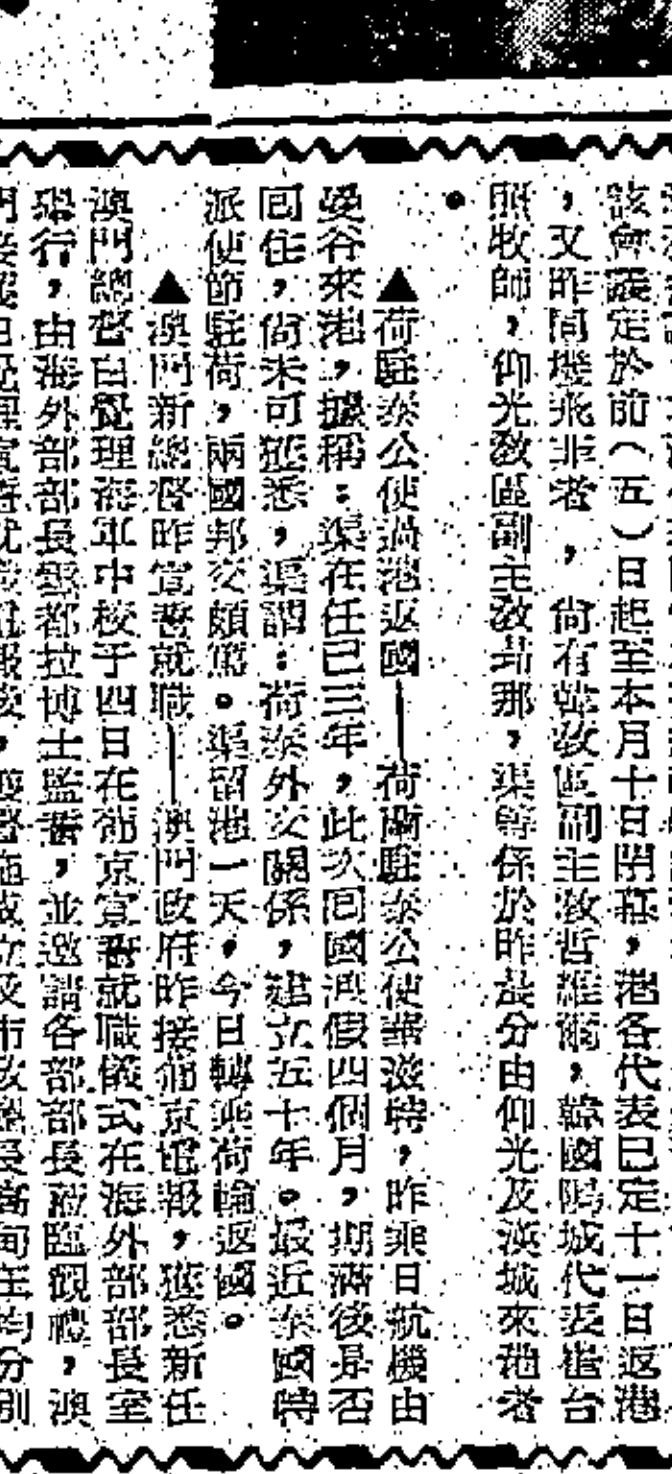 該會議定於前（五）日起至本月十日閉幕，港各代表已定十一日返港
，又昨同機飛非者，尚有韓敎區副主敎哲維爾，韓國陽城代表崔台
照牧師，仰光敎區副主敎茄那，渠等係於昨晨分由仰光及漢城來港者
。
▲荷駐泰公使過港返國——荷蘭駐泰公使華滋特，昨乘日航機由
曼谷來港，據稱：渠在任已三年，此次回國渡假四個月，期滿後是否
回任，尚未可獲悉，渠謂：荷泰外交關係，建立五十年。最近泰國特
派使節駐荷，兩國邦交頗篤。渠留港一天，今日轉乘荷輪返國。
▲澳門新總督昨宣誓就職——澳門政府昨接葡京電報，獲悉新任
澳門總督白覺理海軍中校于四日在葡京宣誓就職儀式在海外部部長室
舉行，由海外部部長雲都拉博士監誓，並邀請各部部長蒞臨觀禮，澳